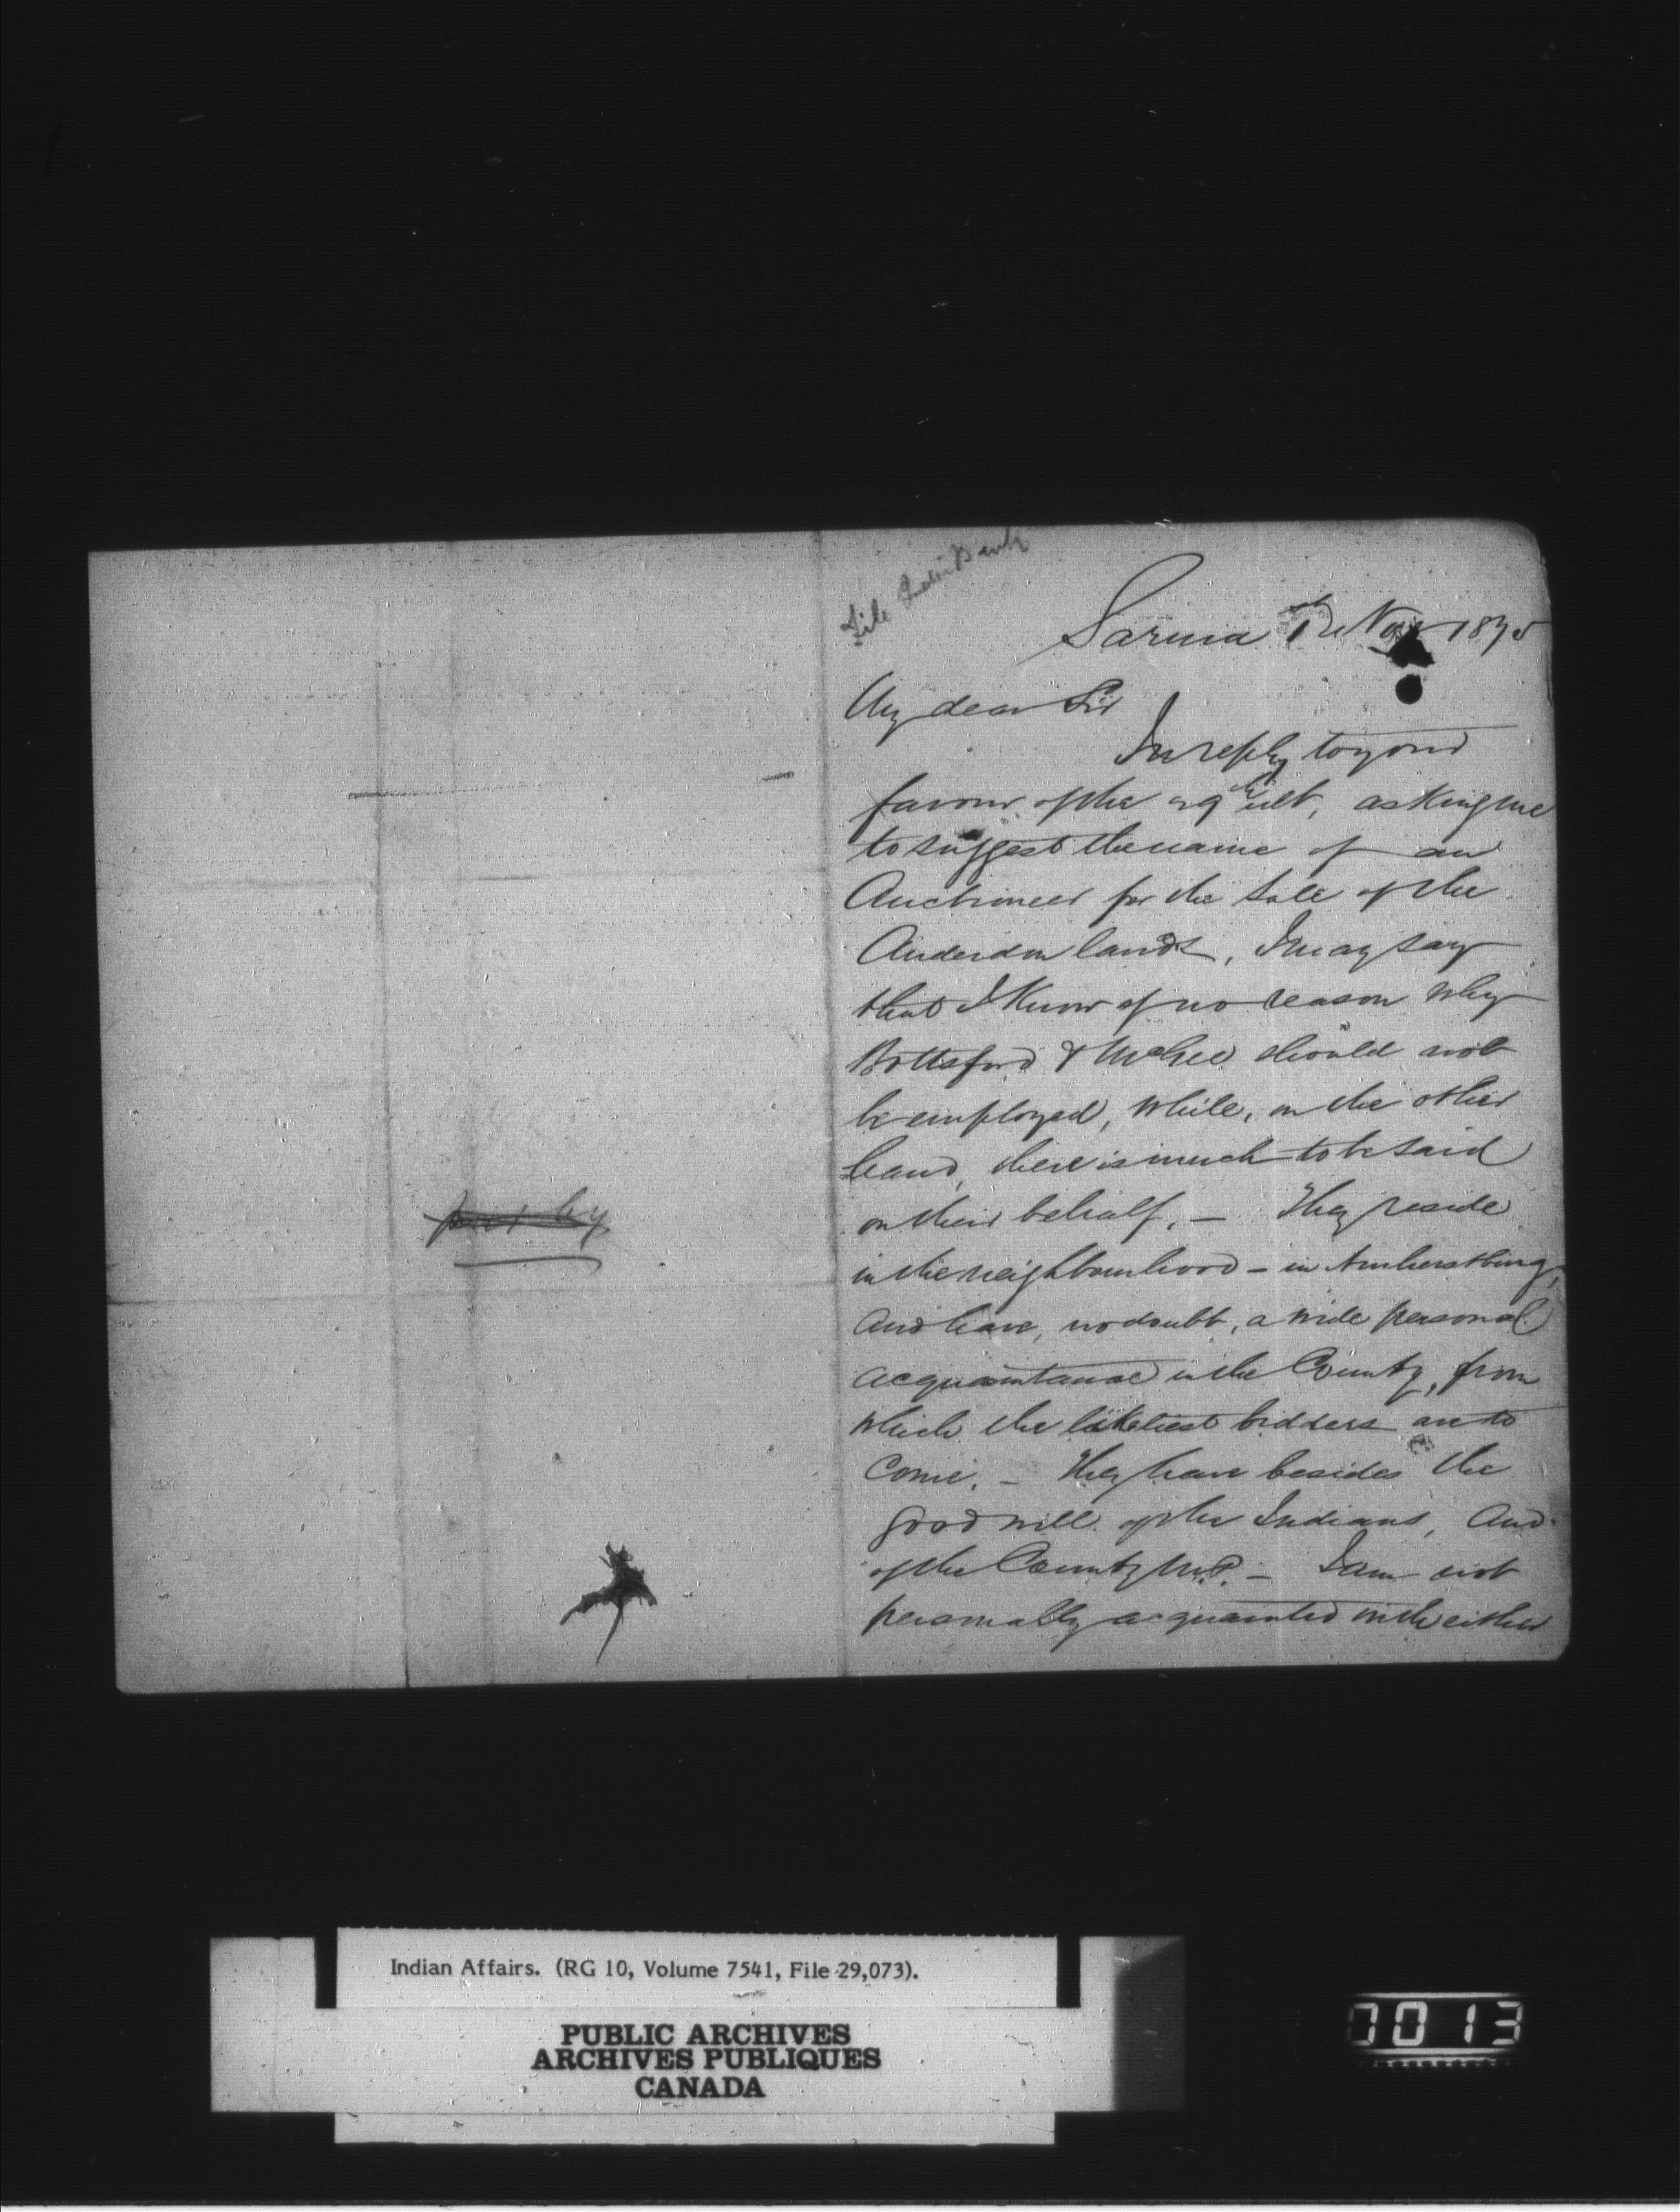 put by
File
Sarnia Nov 1875
My dear Sir
In reply to your
favour of the 29th ult, asking me
to suggest the name of an
Auctioneer for the Sale of the
Anderdon lands, I may say
that I know of no reason why
Bottsford & McGee should not
be employed, while, on the other
hand, there is much to be said
on their behalf. — They reside
in the neighbourhood — in Amherstburg,
and have, no doubt, a wide personal
acquaintance in the County, from
which the likeliest bidders are to
come. — They have besides the
good will of the Indians, and
of the County M.P. — I am not
personally acquainted with either
Indian Affairs. (RG 10, Volume 7541, File 29,073).
PUBLIC ARCHIVES
ARCHIVES PUBLIQUES
CANADA
0013